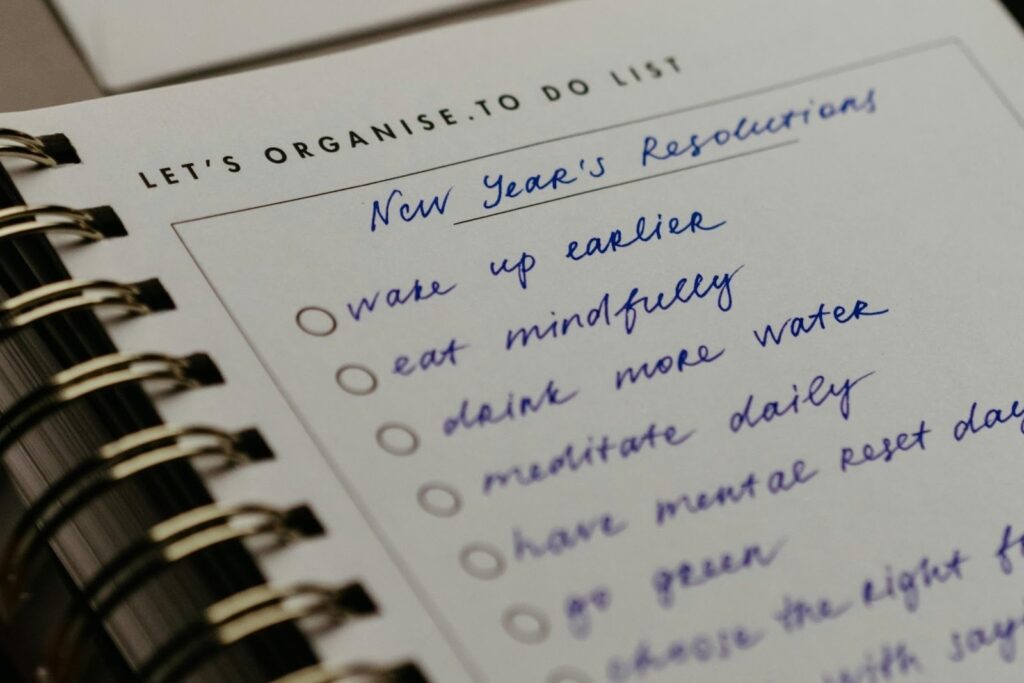 LET'S ORGANISE.TO DO LIST
New Year's Resolutions
wake up earlier
eat mindfully
drink more water
meditate daily
have mental reset day
go green
choose the right
with